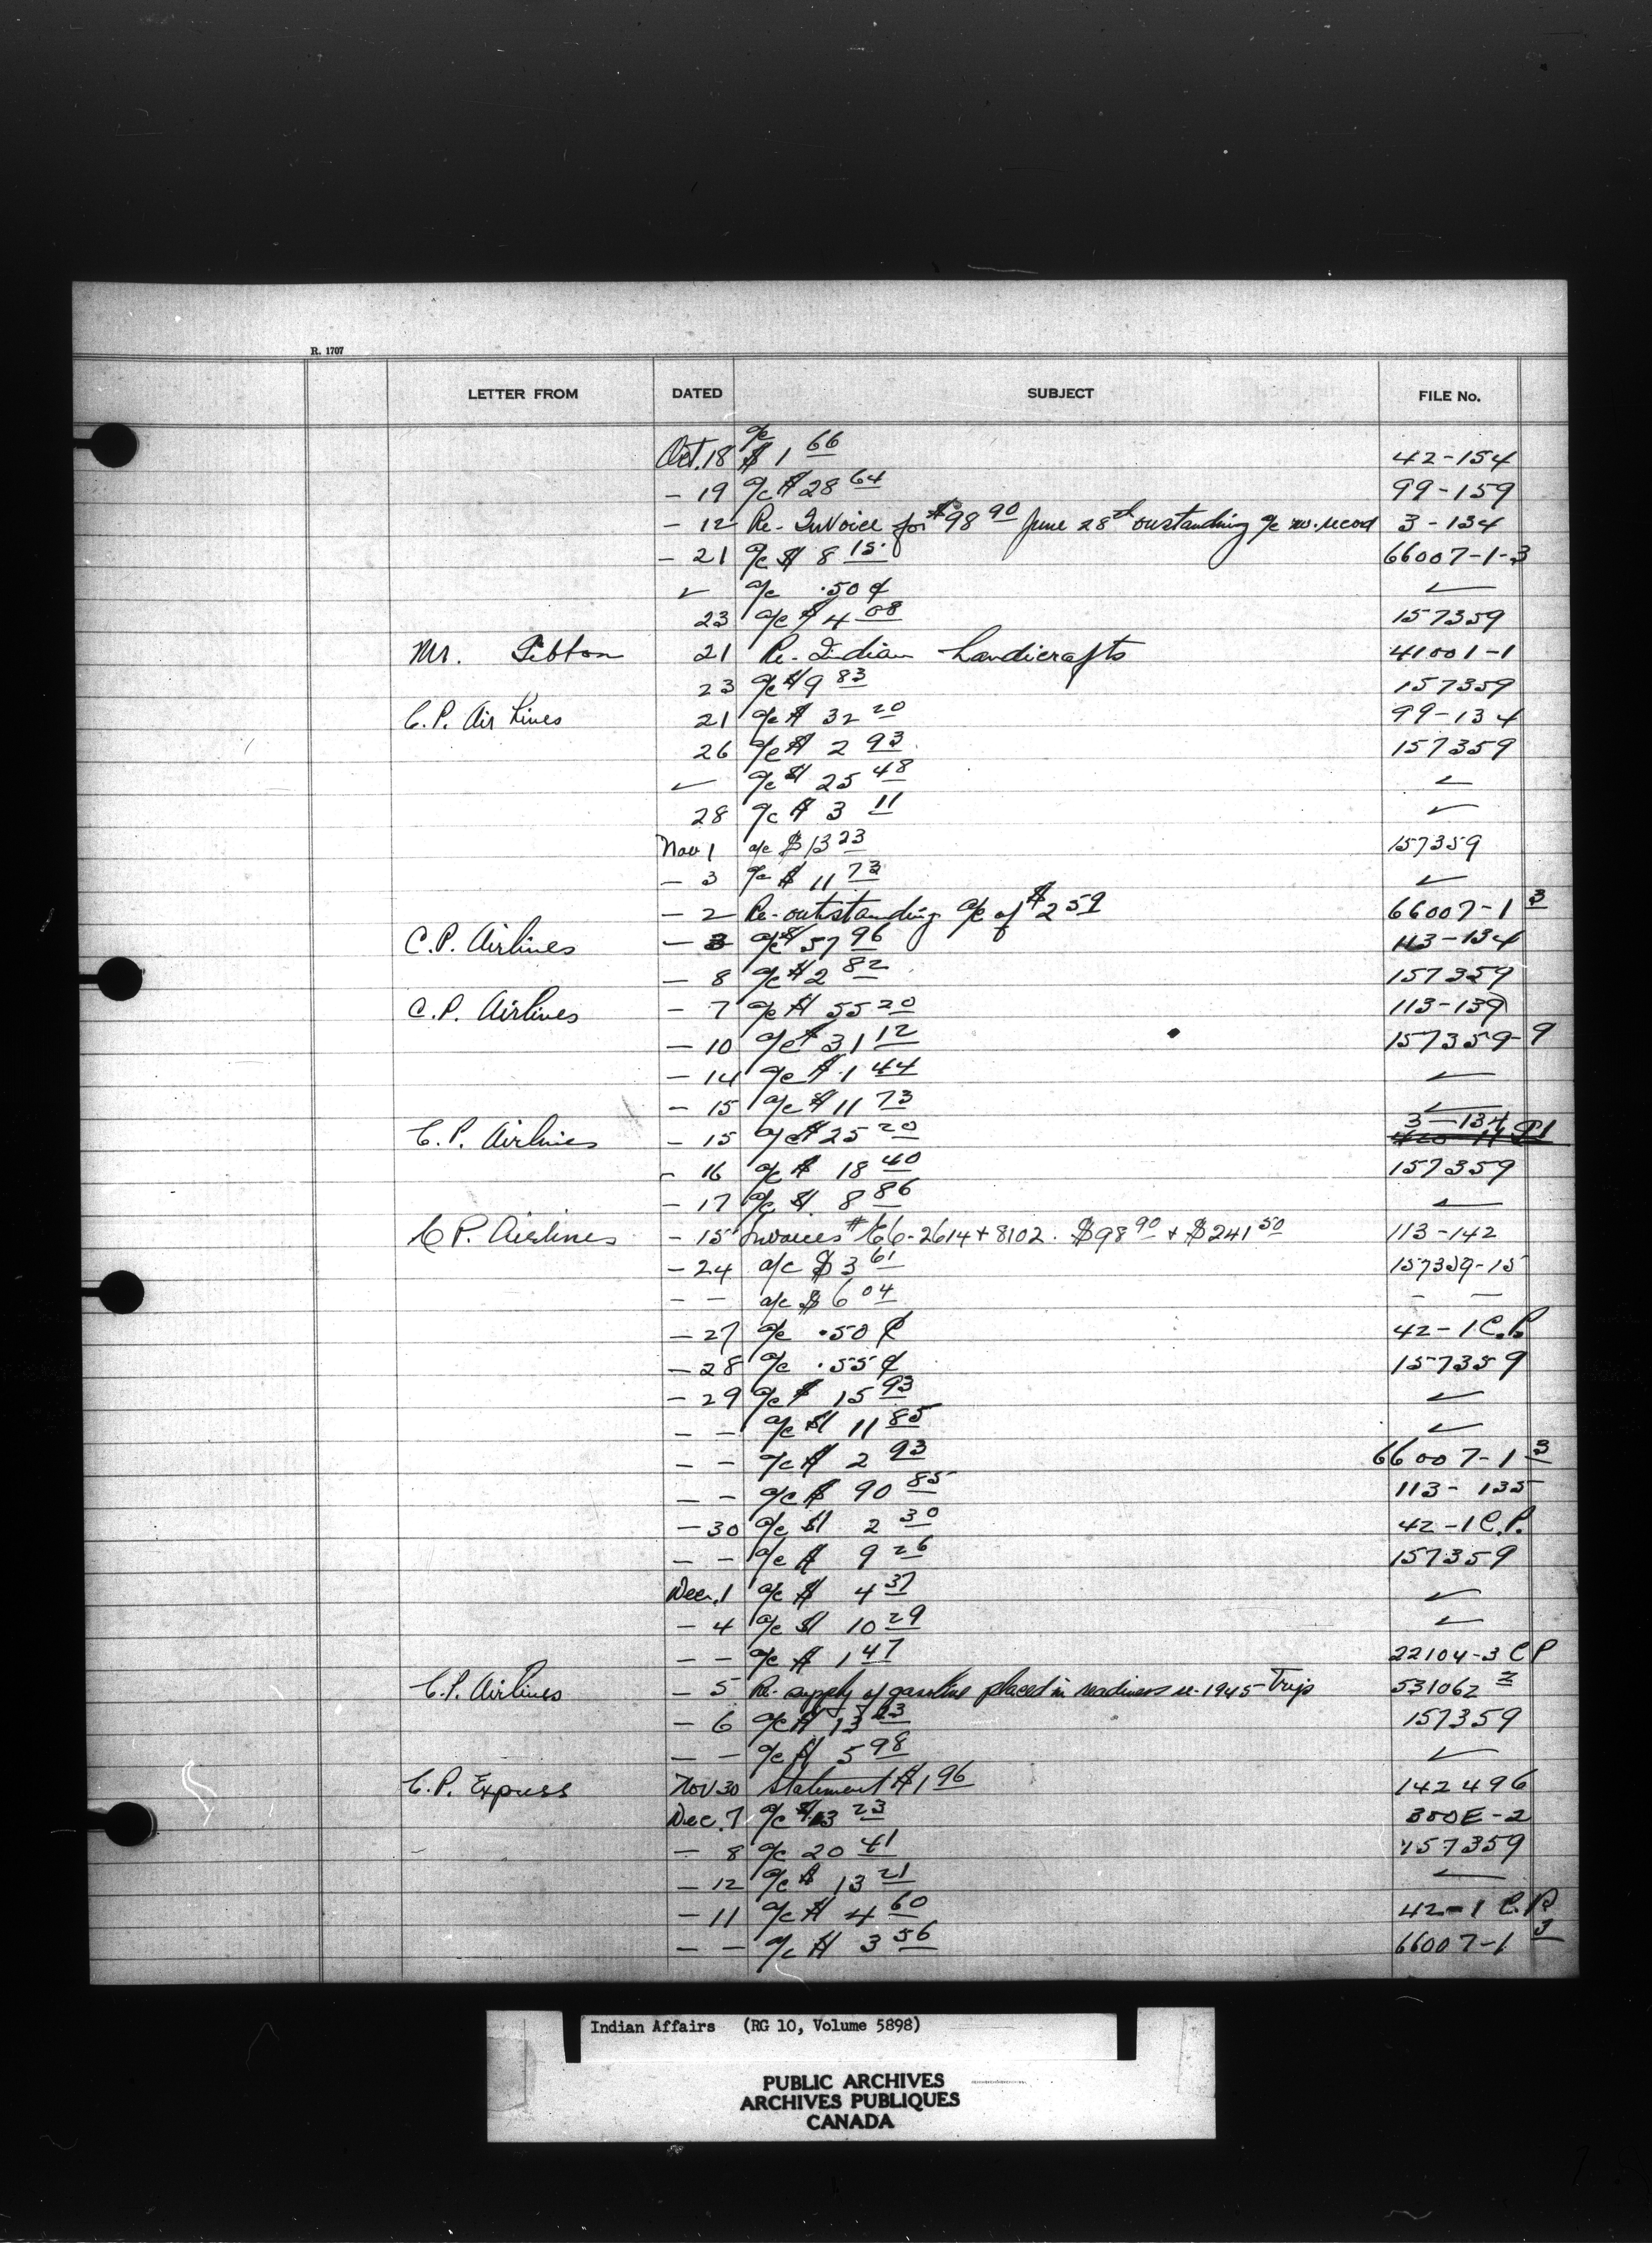 R. 1707
LETTER FROM DATED SUBJECT FILE No.
Oct. 18 a/c $1 66 42-154
- 19 a/c $28 64 99-159
- 12 Re- Invoice for $98 90 June 28 outstanding a/c no. record 3-134
- 21 a/c $ 8 15 66007-1-3
✓ a/c .50 ¢ ✓
23 a/c $ 4 08 157359
Mr. 21 Re- Indian handicrafts 41001-1
23 a/c $9 83 157359
C.P. Air Lines 21 a/c $ 32 20 99-134
26 a/c $ 2 93 157359
✓ a/c $ 25 48 ✓
28 a/c $ 3 11 ✓
Nov 1 a/c $13 23 157359
- 3 a/c $ 11 73 ✓
- 2 Re- outstanding a/c of $2 59 66007-1 3
C.P. Airlines - 3 a/c $ 57 96 113-134
- 8 a/c $2 82 157359
C.P. Airlines - 7 a/c $ 55 20 113-139
- 10 a/c $ 31 12 157359-9
- 14 a/c $ 1 44 ✓
- 15 a/c $ 11 73 ✓
C.P. Airlines - 15 a/c $25 20 3-134
- 16 a/c $ 18 40 157359
- 17 a/c $ 8 86 ✓
C.P. Airlines - 15 Invoices # E6-2614 + 8102. $98 90 + $241 50 113-142
- 24 a/c $ 3 61 157359-15
- - a/c $ 6 04 - -
- 27 a/c .50 ¢ 42-1 C.P.
- 28 a/c .55 ¢ 157359
- 29 a/c $ 15 93 ✓
- - a/c $ 11 85 ✓
- - a/c $ 2 93 66007-1 3
- - a/c $ 90 85 113-135
- 30 a/c $ 2 30 42-1 C.P.
- - a/c $ 9 26 157359
Dec. 1 a/c $ 4 37 ✓
- 4 a/c $ 10 29 ✓
- - a/c $ 1 47 22104-3 CP
C.P. Airlines - 5 Re- supply of gasoline placed in readiness re-1945 Trip 531062 2
- 6 a/c $ 13 23 157359
- - a/c $ 5 98 ✓
C.P. Express Nov 30 Statement $1 96 142496
Dec. 7 a/c $13 23 300E-2
- 8 a/c 20 41 157359
- 12 a/c $ 13 21 ✓
- 11 a/c $ 4 60 42-1 C.P.
- - a/c $ 3 56 66007-1 3
Indian Affairs (RG 10, Volume 5898)
PUBLIC ARCHIVES
ARCHIVES PUBLIQUES
CANADA